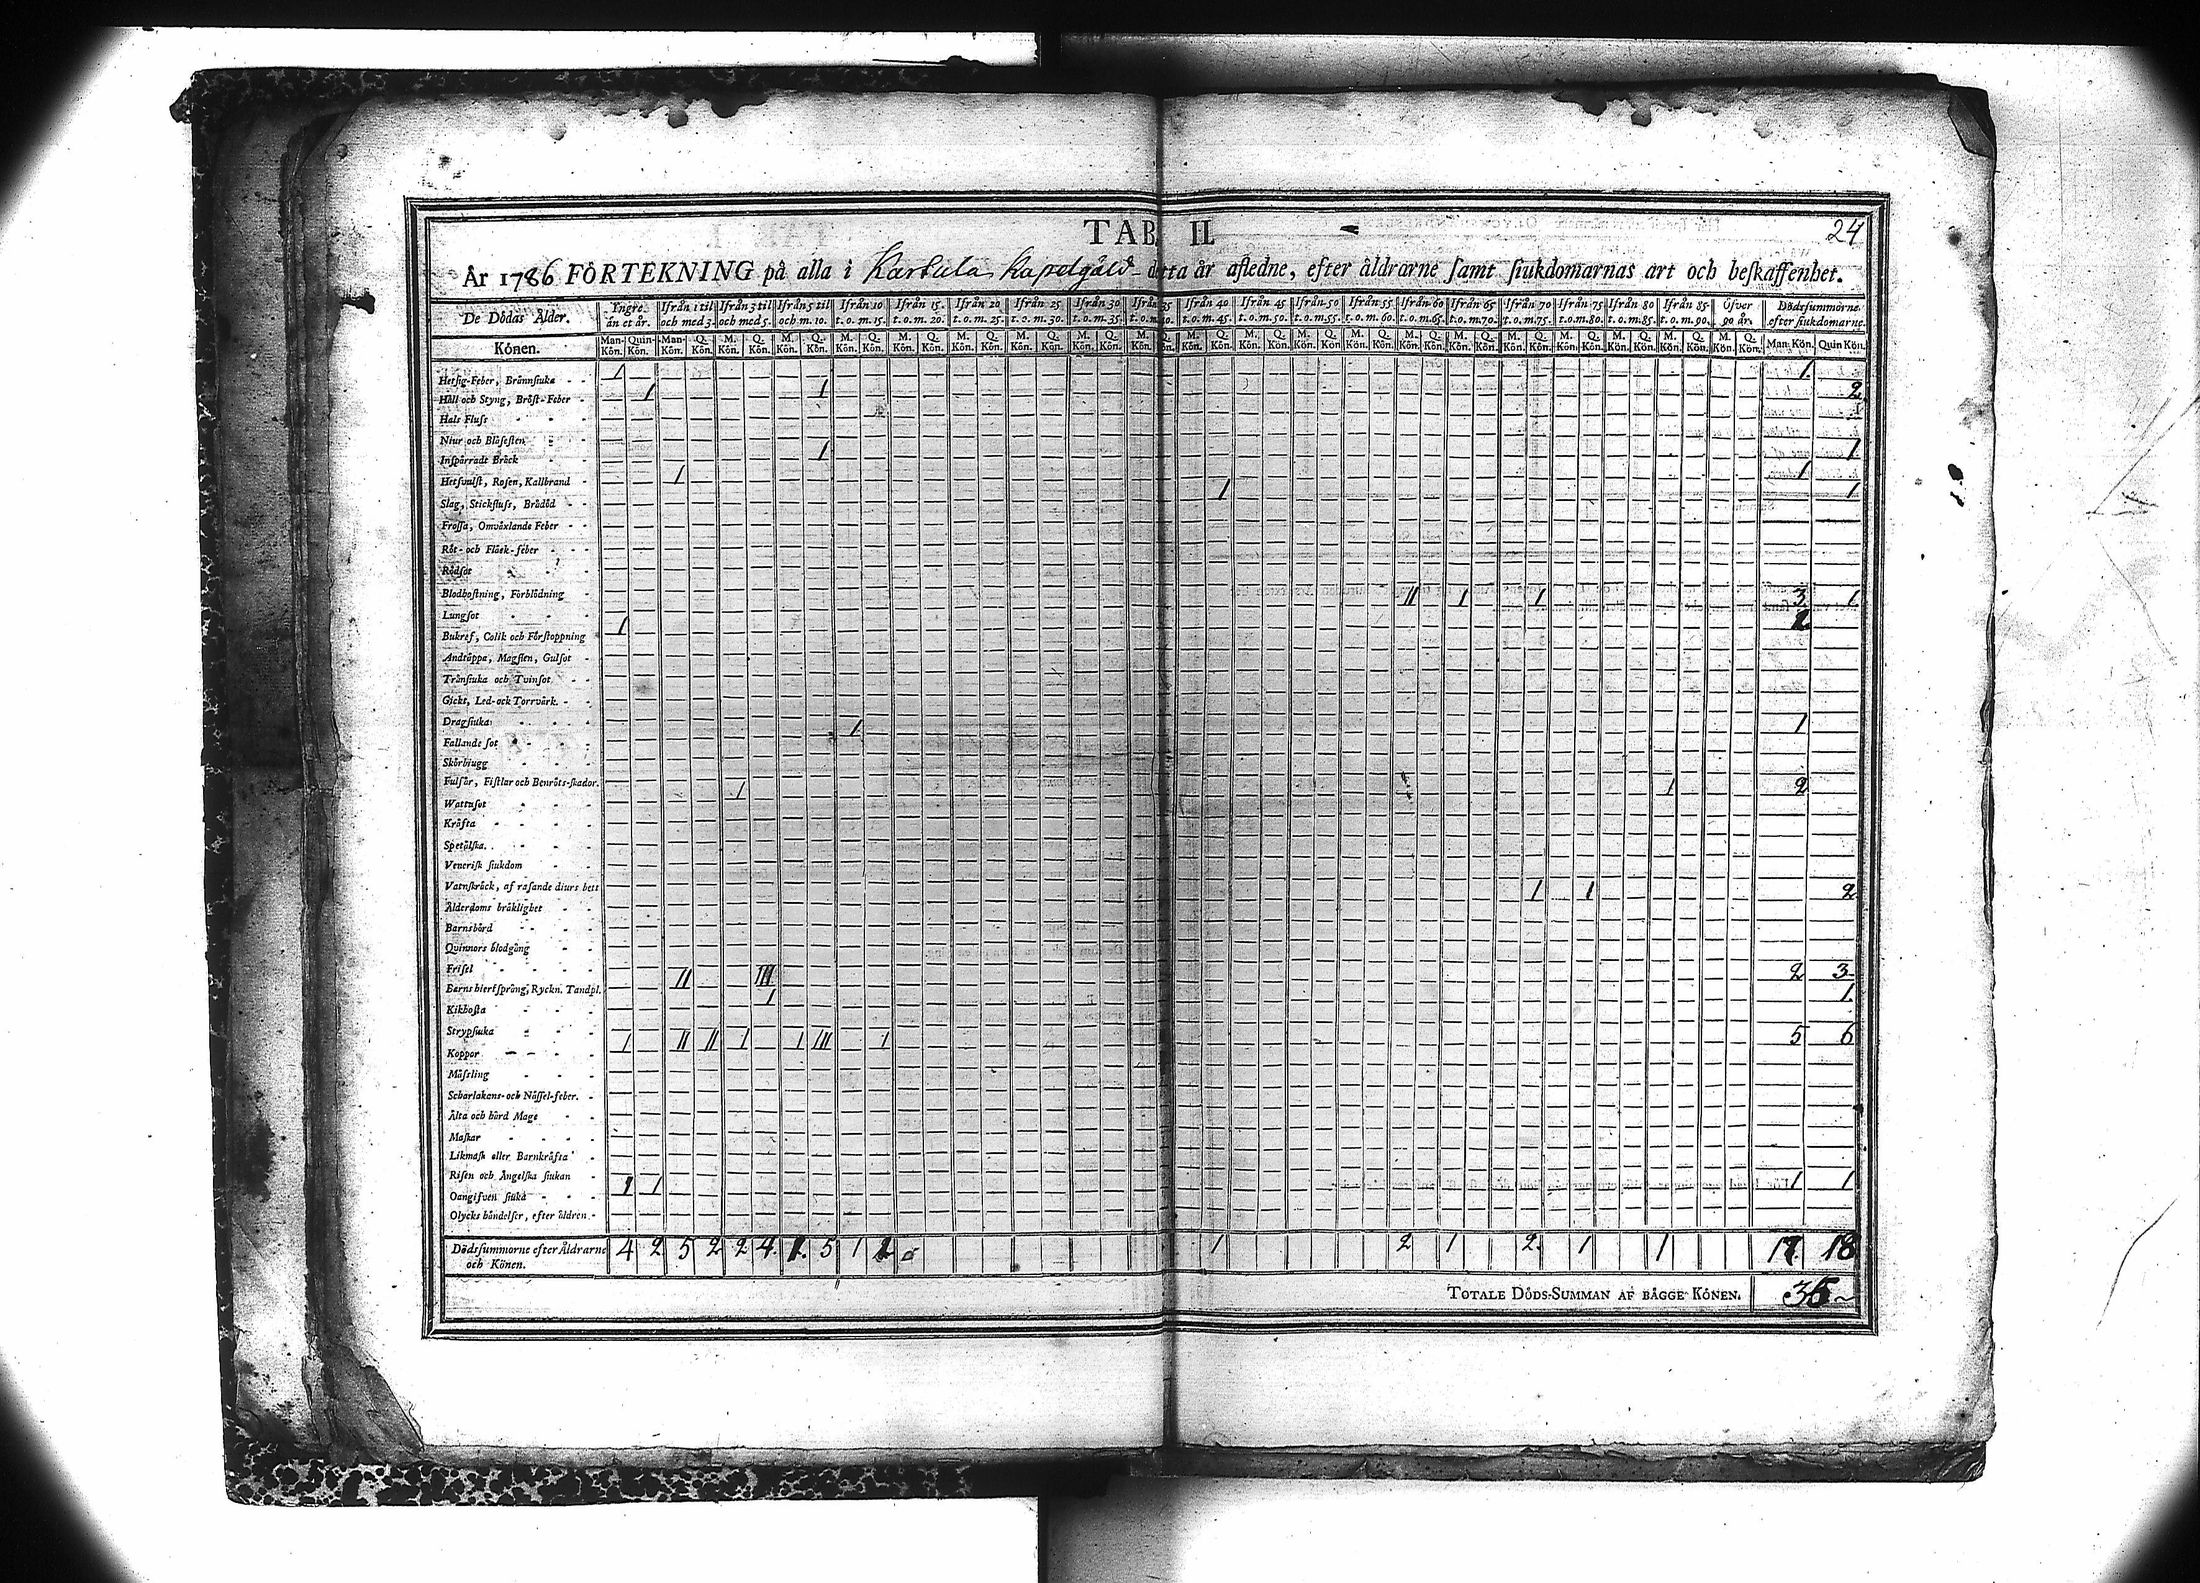 TAB. II.
24
År 1786 FÖRTEKNING på alla i Karstula Kapelgäld detta år afledne, efter åldrarne samt siukdomarnas art och beskaffenhet.
De Dödas Ålder. Yngre än et år. Ifrån 1 til och med 3. Ifrån 3 til och med 5. Ifrån 5 til och m. 10. Ifrån 10 t. o. m. 15. Ifrån 15 t. o. m. 20. Ifrån 20 t. o. m. 25. Ifrån 25 t. o. m. 30. Ifrån 30 t. o. m. 35. Ifrån 35 t. o. m. 40. Ifrån 40 t. o. m. 45. Ifrån 45 t. o. m. 50. Ifrån 50 t. o. m. 55. Ifrån 55 t. o. m. 60. Ifrån 60 t. o. m. 65. Ifrån 65 t. o. m. 70. Ifrån 70 t. o. m. 75. Ifrån 75 t. o. m. 80. Ifrån 80 t. o. m. 85. Ifrån 85 t. o. m. 90. Öfver 90 år. Dödssummorne efter siukdomarne.
Könen. Man-Kön. Quin-Kön. Man-Kön. Q. Kön. M. Kön. Q. Kön. M. Kön. Q. Kön. M. Kön. Q. Kön. M. Kön. Q. Kön. M. Kön. Q. Kön. M. Kön. Q. Kön. M. Kön. Q. Kön. M. Kön. Q. Kön. M. Kön. Q. Kön. M. Kön. Q. Kön. M. Kön. Q. Kön. M. Kön. Q. Kön. M. Kön. Q. Kön. M. Kön. Q. Kön. M. Kön. Q. Kön. M. Kön. Q. Kön. M. Kön. Q. Kön. M. Kön. Q. Kön. M. Kön. Q. Kön. Man Kön. Quin Kön.
Hetsig-Feber, Brännsiuka - - 1 1
Håll och Styng, Bröst-Feber - 1 1 2
Hals Fluss
Niur och Blåsesten
Inspärradt Bråck 1 1
Hetsvulst, Rosen, Kallbrand - 1 1
Slag, Stickfluss, Brådöd - 1 1
Frossa, Omväxlande Feber - -
Röt- och Fläck-feber - - -
Rödsot
Blodhostning, Förblödning
Lungsot II 1 1 3 1
Bukref, Colik och Förstoppning 1
Andtäppa, Magsten, Gulsot -
Trånsiuka och Tvinsot - -
Gickt, Led- och Torrvärk. - -
Dragsiuka
Fallande sot 1 1
Skörbiugg
Fulsår, Fistlar och Benröts-skador.
Wattusot 1 1 2
Kräfta
Spetälska.
Venerisk siukdom
Vatnskräck, af rasande diurs bett
Ålderdoms bräklighet 1 1 2
Barnsbörd
Quinnors blodgång
Frisel
Barns hiertsprång, Ryckn. Tandpl. II III 2 3
Kikhosta 1 1
Strypsiuka
Koppor 1 II II 1 1 III 1 5 6
Mässling
Scharlakans- och Nässel-feber. -
Älta och hård Mage
Maskar
Likmask eller Barnkräfta
Risen och Ängelska siukan
Oangifven siuka 1 1 1 1
Olycks händelser, efter åldren. -
Dödssummorne efter Åldrarne och Könen. 4 2 5 2 2 4 1 5 1 1 1 2 1 2 1 1 17 18
TOTALE DÖDS-SUMMAN AF BÅGGE KÖNEN. 35